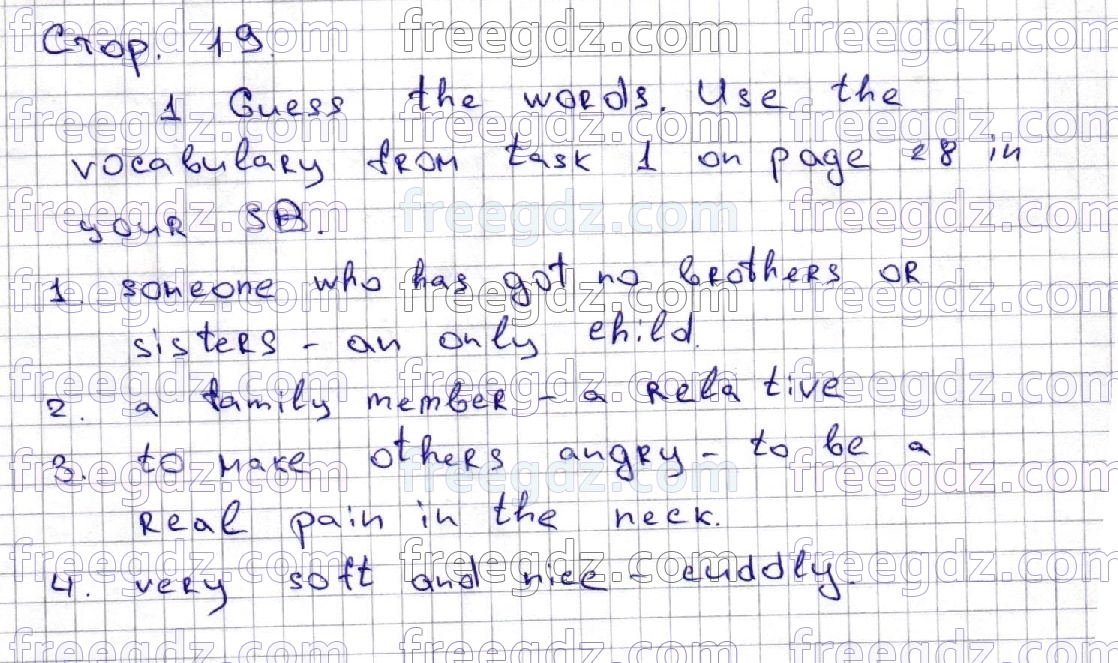 Стор. 19.
1 Guess the words. Use the
vocabulary from task 1 on page 28 in
your SB.
1. someone who has got no brothers or
sisters - an only child.
2. a family member - a relative
3. to make others angry - to be a
real pain in the neck.
4. very soft and nice - cuddly.
freegdz.com